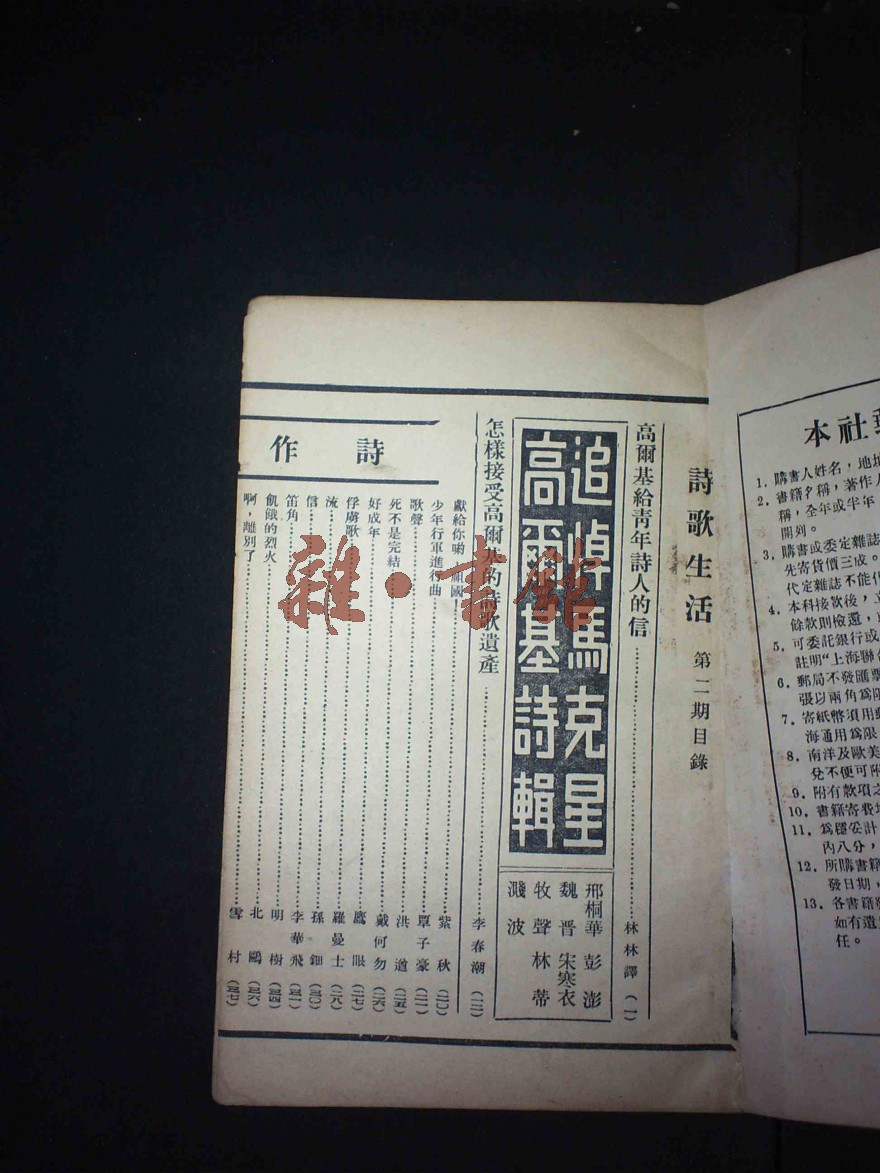 詩歌生活 第二期目錄
高爾基給青年詩人的信 林林譯 (一)
追悼馬克星
高爾基詩輯
邢桐華 彭澎
魏晋 宋寒衣
牧聲 林蒂
濺波
怎樣接受高爾基的詩歌遺產 李春潮 (一二)
詩作
獻給你喲,祖國! 紫秋 (二〇)
少年行軍進行曲 覃子豪 (二一)
歌聲 洪遒 (二五)
死不是完結 戴何勿 (二六)
好成年 鷹眼 (二七)
俘虜歌 羅曼士 (二八)
流 孫鈿 (三〇)
信 李華飛 (三一)
笛角 明樹 (三四)
飢餓的烈火 北鷗 (三六)
啊,離別了 雪村 (三七)
雜·書館
本社
1. 購書人姓名,地
2. 書籍名稱,著作人
稱,全年或半年,
開列。
3. 購書或委定雜誌
先寄貨價三成。
代定雜誌不能代
4. 本科接欵後,立
餘欵則檢還,
5. 可委託銀行或
註明“上海聯合
6. 郵局不發匯票
張以兩角為限
7. 寄紙幣須用郵
海通用為限
8. 南洋及歐美
兌不便可附
9. 附有欵項之
10. 書籍寄費
11. 為穩妥計
內八分,
12. 所購書籍
發日期,
13. 各書籍
如有遺
任。